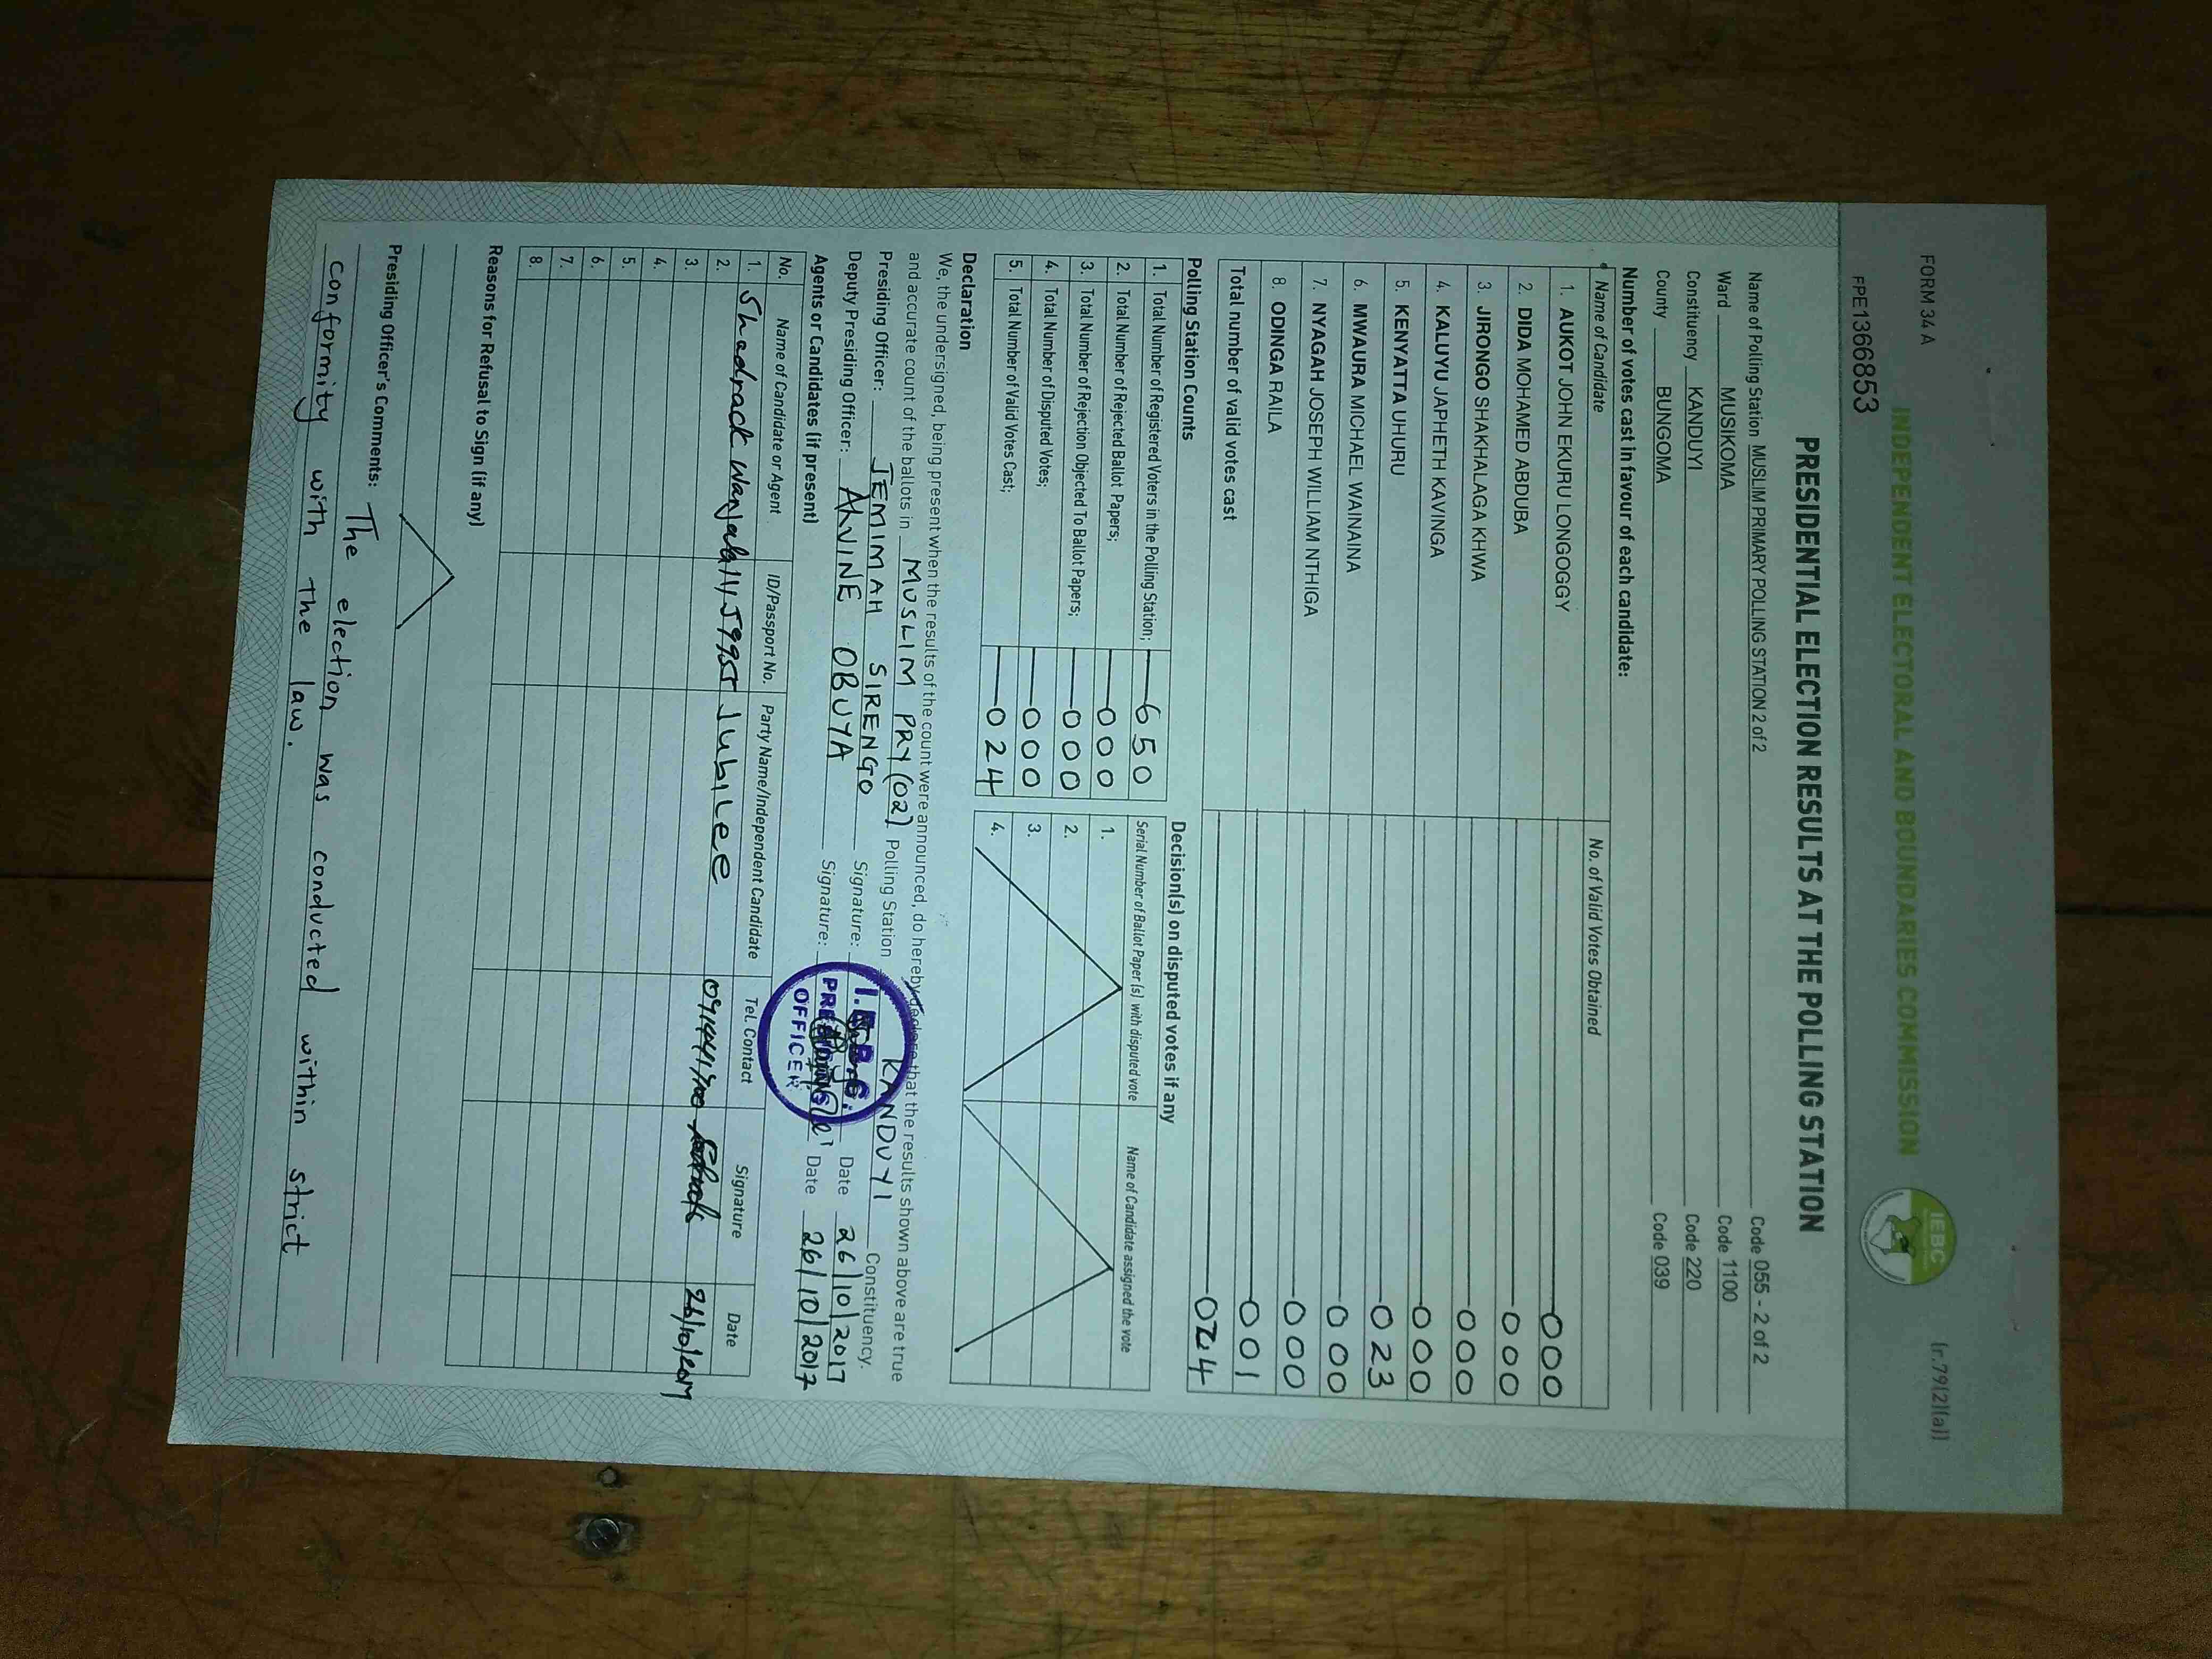 FORM 34 A
(r.79(2)(a))
INDEPENDENT ELECTORAL AND BOUNDARIES COMMISSION
IEBC
FPE1366853
PRESIDENTIAL ELECTION RESULTS AT THE POLLING STATION
Name of Polling Station MUSLIM PRIMARY POLLING STATION 2 of 2 Code 055 - 2 of 2
Ward MUSIKOMA Code 1100
Constituency KANDUYI Code 220
County BUNGOMA Code 039
Number of votes cast in favour of each candidate:
Name of Candidate No. of Valid Votes Obtained
1. AUKOT JOHN EKURU LONGOGGY 000
2. DIDA MOHAMED ABDUBA 000
3. JIRONGO SHAKHALAGA KHWA 000
4. KALUYU JAPHETH KAVINGA 000
5. KENYATTA UHURU 023
6. MWAURA MICHAEL WAINAINA 000
7. NYAGAH JOSEPH WILLIAM NTHIGA 000
8. ODINGA RAILA 001
Total number of valid votes cast 024
Polling Station Counts
1. Total Number of Registered Voters in the Polling Station; 650
2. Total Number of Rejected Ballot Papers; 000
3. Total Number of Rejection Objected To Ballot Papers; 000
4. Total Number of Disputed Votes; 000
5. Total Number of Valid Votes Cast; 024
Decision(s) on disputed votes if any
Serial Number of Ballot Paper (s) with disputed vote Name of Candidate assigned the vote
1.
2.
3.
4.
Declaration
We, the undersigned, being present when the results of the count were announced, do hereby declare that the results shown above are true
and accurate count of the ballots in MUSLIM PRY (02) Polling Station KANDUYI Constituency.
Presiding Officer: JEMIMMAH SIRENGO Signature: Date 26/10/2017
Deputy Presiding Officer: ALVINE OBUYA Signature: Date 26/10/2017
I.E.B.C.
PRESIDING
OFFICER
Agents or Candidates (if present)
No. Name of Candidate or Agent ID/Passport No. Party Name/Independent Candidate Tel. Contact Signature Date
1. Shadrack Wanjala Jubilee 26/10/2017
2.
3.
4.
5.
6.
7.
8.
Reasons for Refusal to Sign (if any)
Presiding Officer's Comments: The election was conducted within strict
conformity with the law.